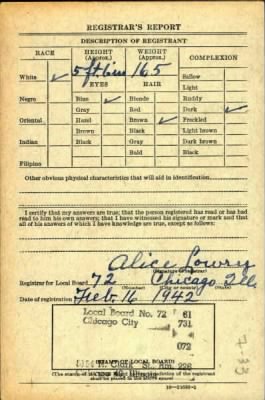 REGISTRAR'S REPORT
DESCRIPTION OF REGISTRANT
RACE HEIGHT (Approx.) WEIGHT (Approx.) COMPLEXION
White ✓ 5 ft. 6 in 165 Sallow
EYES HAIR Light
Negro Blue ✓ Blonde Ruddy
Gray Red Dark ✓
Oriental Hazel Brown ✓ Freckled
Brown Black Light brown
Indian Black Gray Dark brown
Bald Black
Filipino
Other obvious physical characteristics that will aid in identification
I certify that my answers are true; that the person registered has read or has had
read to him his own answers; that I have witnessed his signature or mark and that
all of his answers of which I have knowledge are true, except as follows:
Alice Lowry
(Signature of registrar)
Registrar for Local Board 72 Chicago Ill.
Date of registration Feb. 16, 1942
Local Board No. 72 61
Chicago City 731
072
N. Clark St. Rm. 226
(STAMP OF LOCAL BOARD)
(The stamp of
shall be placed in the above space)